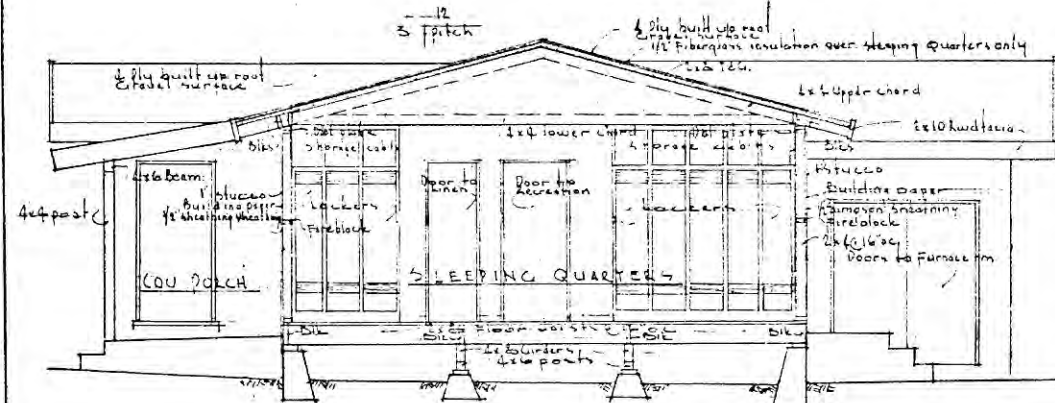 12
3 pitch
4 ply built up roof
Gravel surface
1/2" Fiberglass insulation over sleeping Quarters only
4 ply built up roof
Gravel surface
Upper chord
2x10 hwd facia
Dbl plate
Storage cab's
4x4 lower chord
Dbl plate
Storage cab's
Blks
Blks
4x6 Beam
4x4 post
1" stucco
Building paper
1/2" sheathing
Lockers
Fireblock
Door to
Linen
Door to
Recreation
Lockers
1" Stucco
Building paper
Sheathing
Fireblock
2x4@16"oc
Doors to Furnace rm
COV PORCH
SLEEPING QUARTERS
Blk
Floor Joists
Blk
Blk
Blk
Girders
4x6 posts